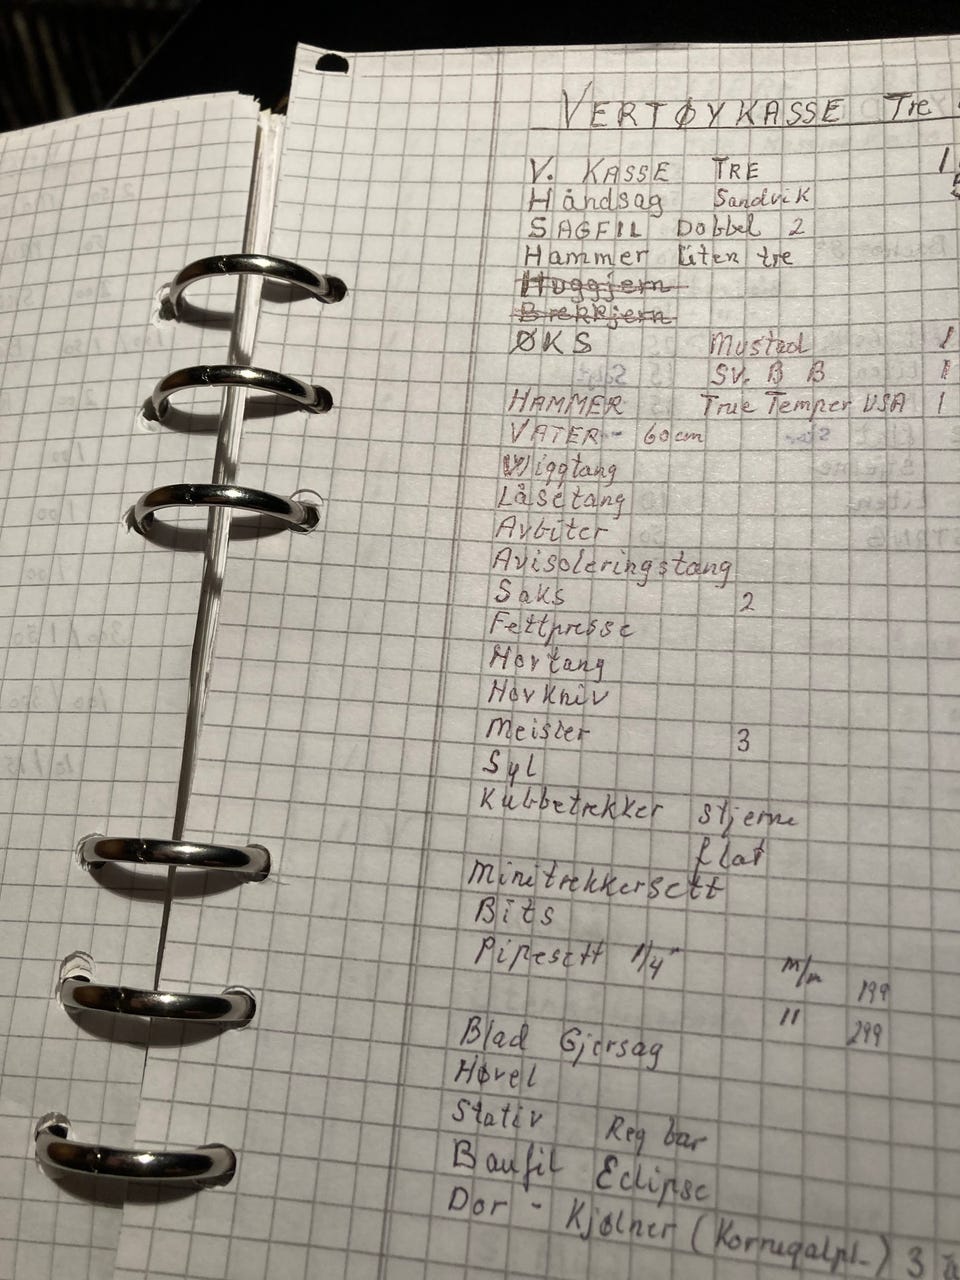 VERTØYKASSE Tre
V. KASSE TRE 1
Håndsag Sandvik
SAGFIL Dobbel 2
Hammer liten tre
Huggjern
Brekkjern
ØKS Mustad 1
SV. B B 1
HAMMER True Temper USA 1
VATER - 60cm
Wiggtang
Låsetang
Avbiter
Avisoleringstang
Saks 2
Fettpresse
Hovtang
Hovkniv
Meisler 3
Syl
Kubbetrekker stjerne
flat
Minitrekkersett
Bits
Pipesett 1/4" m/m 199
" 299
Blad Gjersag
Høvel
Stativ Reg bar
Baufil Eclipse
Dor - Kjølner (Korrugalpl.) 3